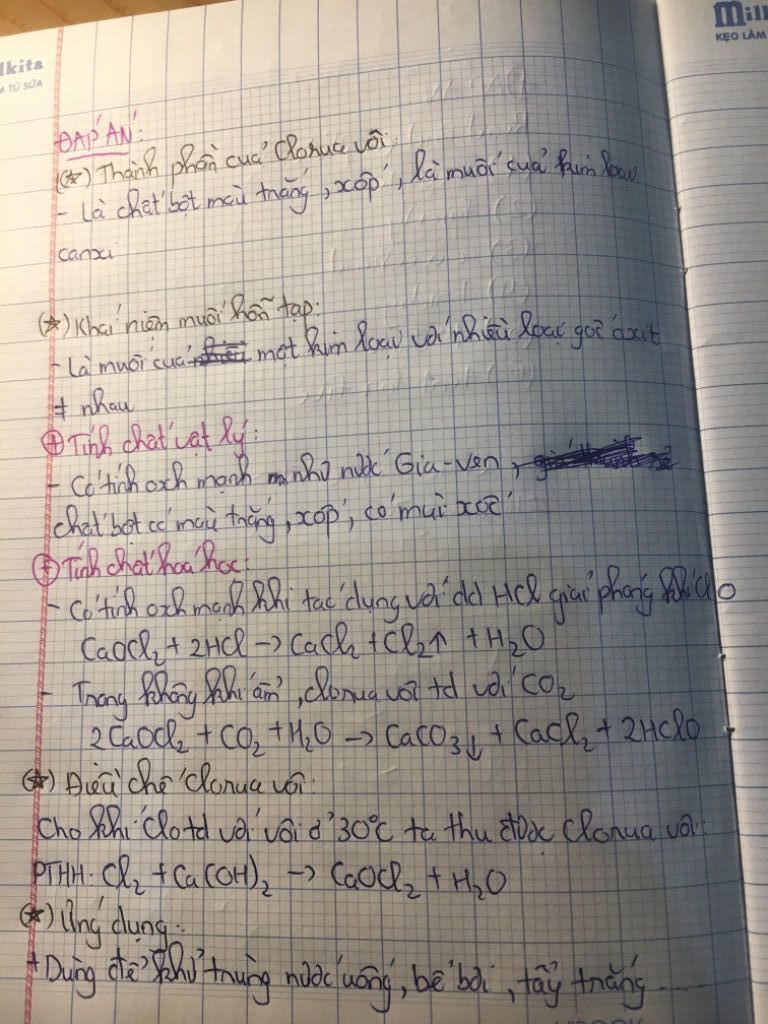 lkita
M TỪ SỮA
Mill
KẸO LÀM
ĐÁP ÁN:
(*) Thành phần của Clorua vôi:
- Là chất bột màu trắng, xốp, là muối của kim loại
canxi
(*) Khái niệm muối hỗn tạp:
- Là muối của một kim loại với nhiều loại gốc axit
≠ nhau
(+) Tính chất vật lý:
- Có tính oxh mạnh như nước Gia-ven,
chất bột có màu trắng, xốp, có mùi xốc
(+) Tính chất hoá học:
- Có tính oxh mạnh khi tác dụng với dd HCl giải phóng khí clo
CaOCl₂ + 2HCl → CaCl₂ + Cl₂↑ + H₂O
- Trong không khí ẩm, clorua vôi td với CO₂
2CaOCl₂ + CO₂ + H₂O → CaCO₃↓ + CaCl₂ + 2HClO
(*) Điều chế clorua vôi:
Cho khí clo td với vôi ở 30°C ta thu được Clorua vôi:
PTHH: Cl₂ + Ca(OH)₂ → CaOCl₂ + H₂O
(*) Ứng dụng:
+ Dùng để khử trùng nước uống, bể bơi, tẩy trắng .....